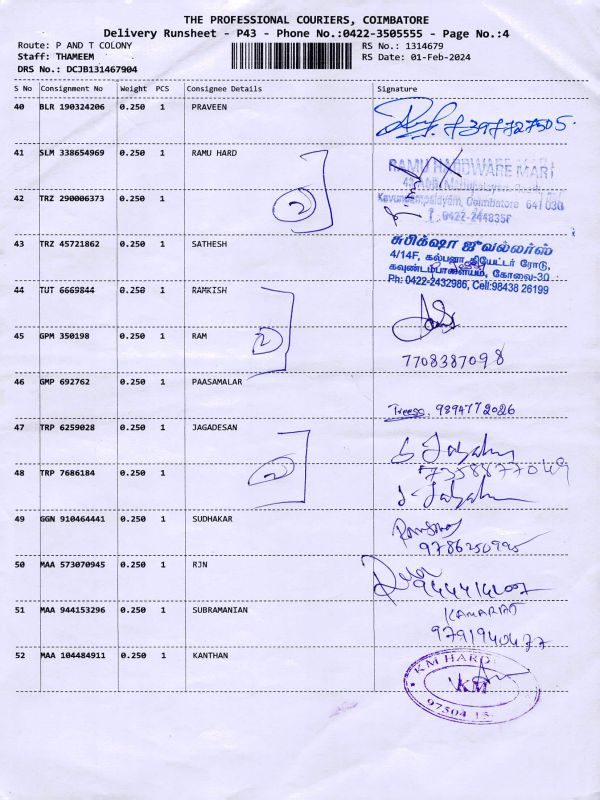 THE PROFESSIONAL COURIERS, COIMBATORE
Delivery Runsheet - P43 - Phone No.:0422-3505555 - Page No.:4
Route: P AND T COLONY RS No.: 1314679
Staff: THAMEEM RS Date: 01-Feb-2024
DRS No.: DCJB131467904
S No Consignment No Weight PCS Consignee Details Signature
40 BLR 190324206 0.250 1 PRAVEEN
41 SLM 338654969 0.250 1 RAMU HARD
RAMU HARDWARE MART
2
42 TRZ 290006373 0.250 1
Kavundampalayam, Coimbatore 641 030
43 TRZ 45721862 0.250 1 SATHESH
சுபிக்‌ஷா ஜுவல்லர்ஸ்
4/14F, கல்பனா தியேட்டர் ரோடு,
கவுண்டம்பாளையம், கோவை-30
Ph: 0422-2432986, Cell:98438 26199
44 TUT 6669844 0.250 1 RAMKISH
2
45 GPM 350198 0.250 1 RAM
7708387098
46 GMP 692762 0.250 1 PAASAMALAR
9894772026
47 TRP 6259028 0.250 1 JAGADESAN
2
7358877049
48 TRP 7686184 0.250 1
49 GGN 910464441 0.250 1 SUDHAKAR
9786250995
50 MAA 573070945 0.250 1 RJN
51 MAA 944153296 0.250 1 SUBRAMANIAN
KAMARAJ
52 MAA 104484911 0.250 1 KANTHAN
KM HARD
KM